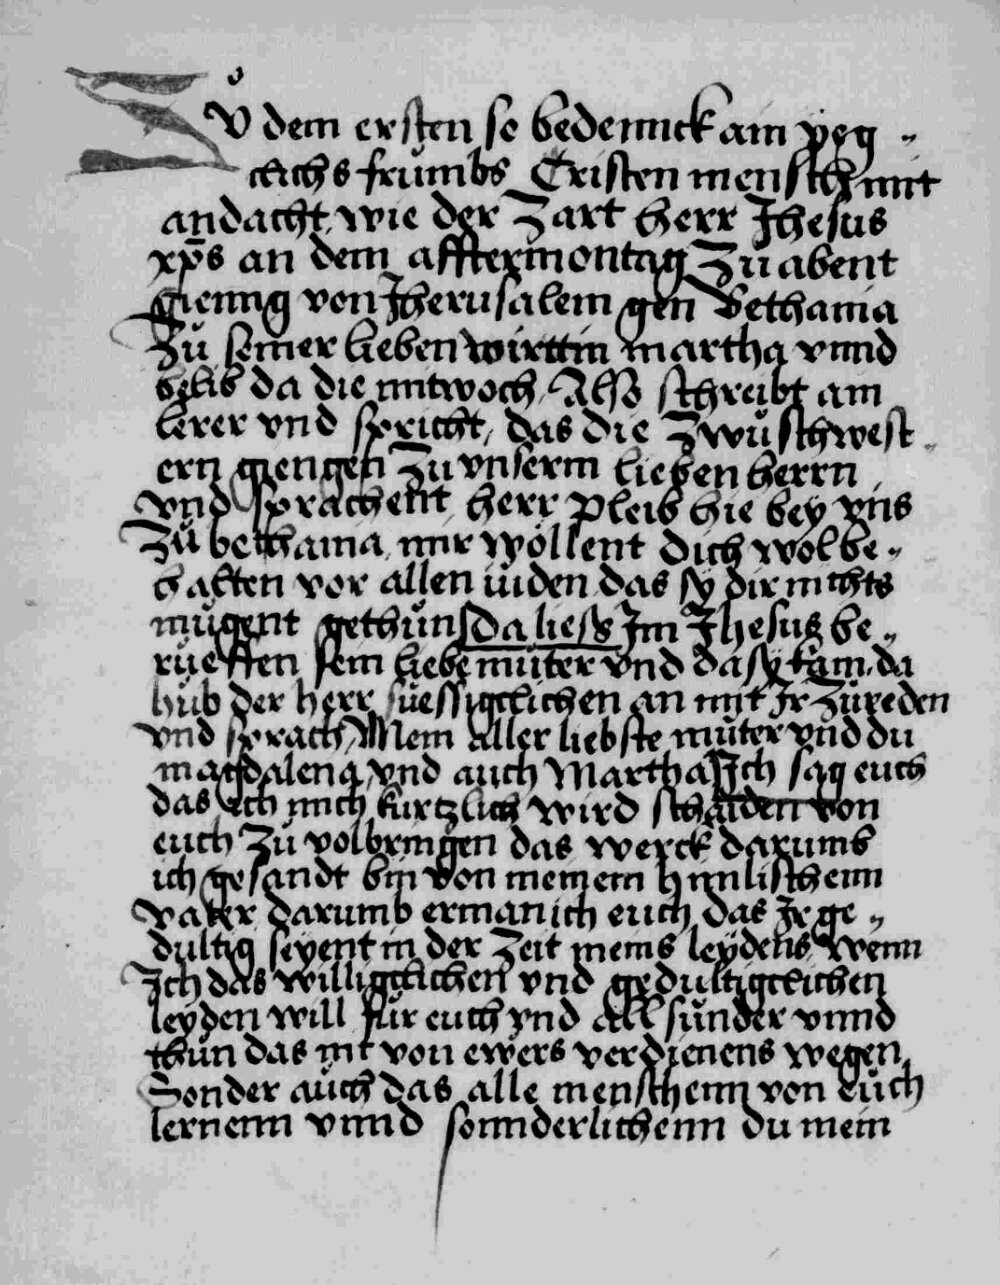 Zů dem ersten so bedennck ain yeg„
clichs frůmbs Cristen mensch mit
andacht, wie der Zart herr Jhesus
xp̄s an dem afftermontag Zů abent
gienng von Jherusalem gen Bethania
Zů seiner lieben wirttin martha vnnd
belib da die mitwoch, Also schreibt ain
lerer vnd spricht, das die Zwů schwest„
ern giengen Zu vnserm lieben herrn
vnd sprachent herr pleib hie bey vns
Zů bethania, mir wöllent dich wol be„
halten vor allen iuden das sy dir nichts
mügent gethůn Da liess Im Jhesus be„
rüeffen sein liebe můter vnd da sy kam, da
hůb der herr süessigclichen an mit Ir Zůreden
vnd sprach, Mein aller liebste můter vnd du
magdalena, vnd auch Martha Ich sag euch
das ich mich kurtzlich wird schaiden von
euch Zů volbringen das werck darumb
ich gesandt bin von meinem himlischenn
vater, darumb erman ich euch, das Ir ge„
dultig seyent in der Zeit meins leydens, Wenn
Ich das willigclichen vnd gedultigclichen
leyden will für euch vnd all sünder vnnd
thůn das nit von ewers verdienens wegen,
Sonder aůch das alle menschenn von eůch
lernenn vnnd sonnderlichenn du mein